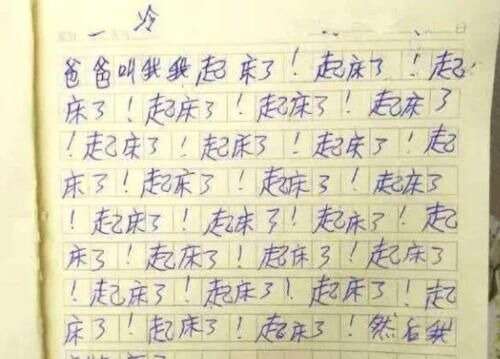 一 冷
爸爸叫我我起床了！起床了！起
床了！起床了！起床了！起床了
！起床了！起床了！起床了！起
床了！起床了！起床了！起床了
！起床了！起床了！起床了！起
床了！起床了！起床了！起床了
！起床了！起床了！起床了！起
床了！起床了！起床了！然后我